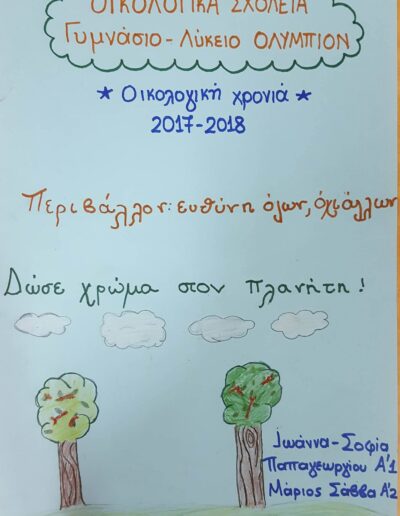 ΟΙΚΟΛΟΓΙΚΑ ΣΧΟΛΕΙΑ
Γυμνάσιο - Λύκειο ΟΛΥΜΠΙΟΝ
★ Οικολογική χρονιά ★
2017-2018
Περιβάλλον: ευθύνη όλων, όχι άλλων
Δώσε χρώμα στον πλανήτη!
Ιωάννα-Σοφία
Παπαγεωργίου Α'1
Μάριος Σάββα Α'2